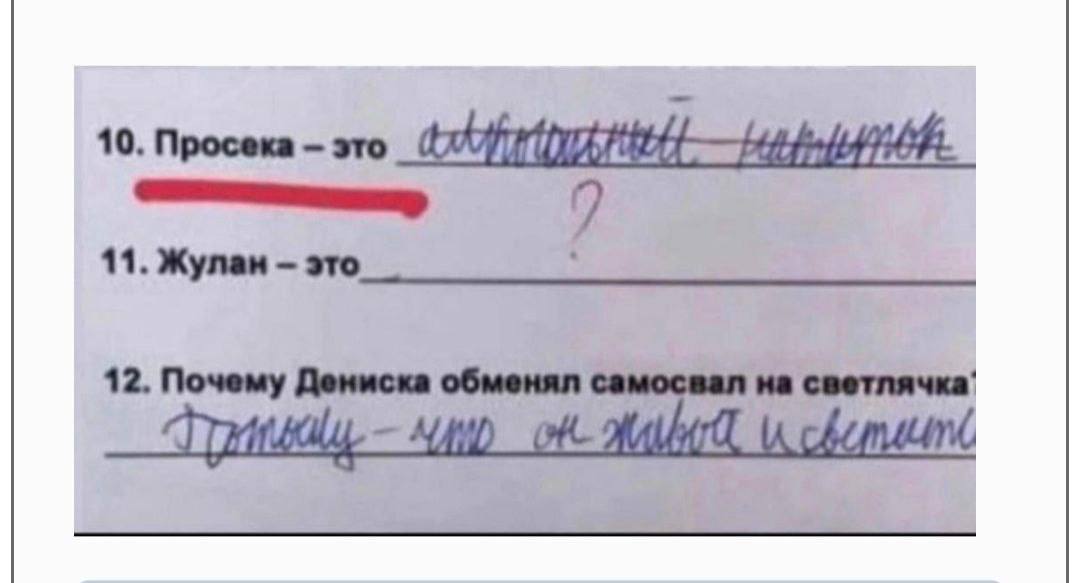 10. Просека – это алкогольный напиток
?
11. Жулан – это
12. Почему Дениска обменял самосвал на светлячка?
Потому-что он живой и светитс